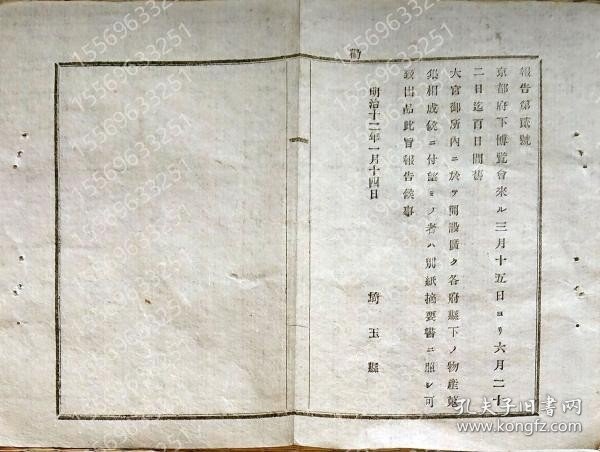 勸
報告第貳號
京都府下博覽會來ル三月十五日ヨリ六月二十
二日迄百日間舊
大宮御所內ニ於テ開設廣ク各府縣下ノ物產蒐
集相成候ニ付望ミノ者ハ別紙摘要書ニ照シ可
致出品此旨報告候事
明治十二年一月十四日
埼玉縣
15569633251
15569633251
15569633251
15569633251
15569633251
15569633251
孔夫子旧书网
www.kongfz.com